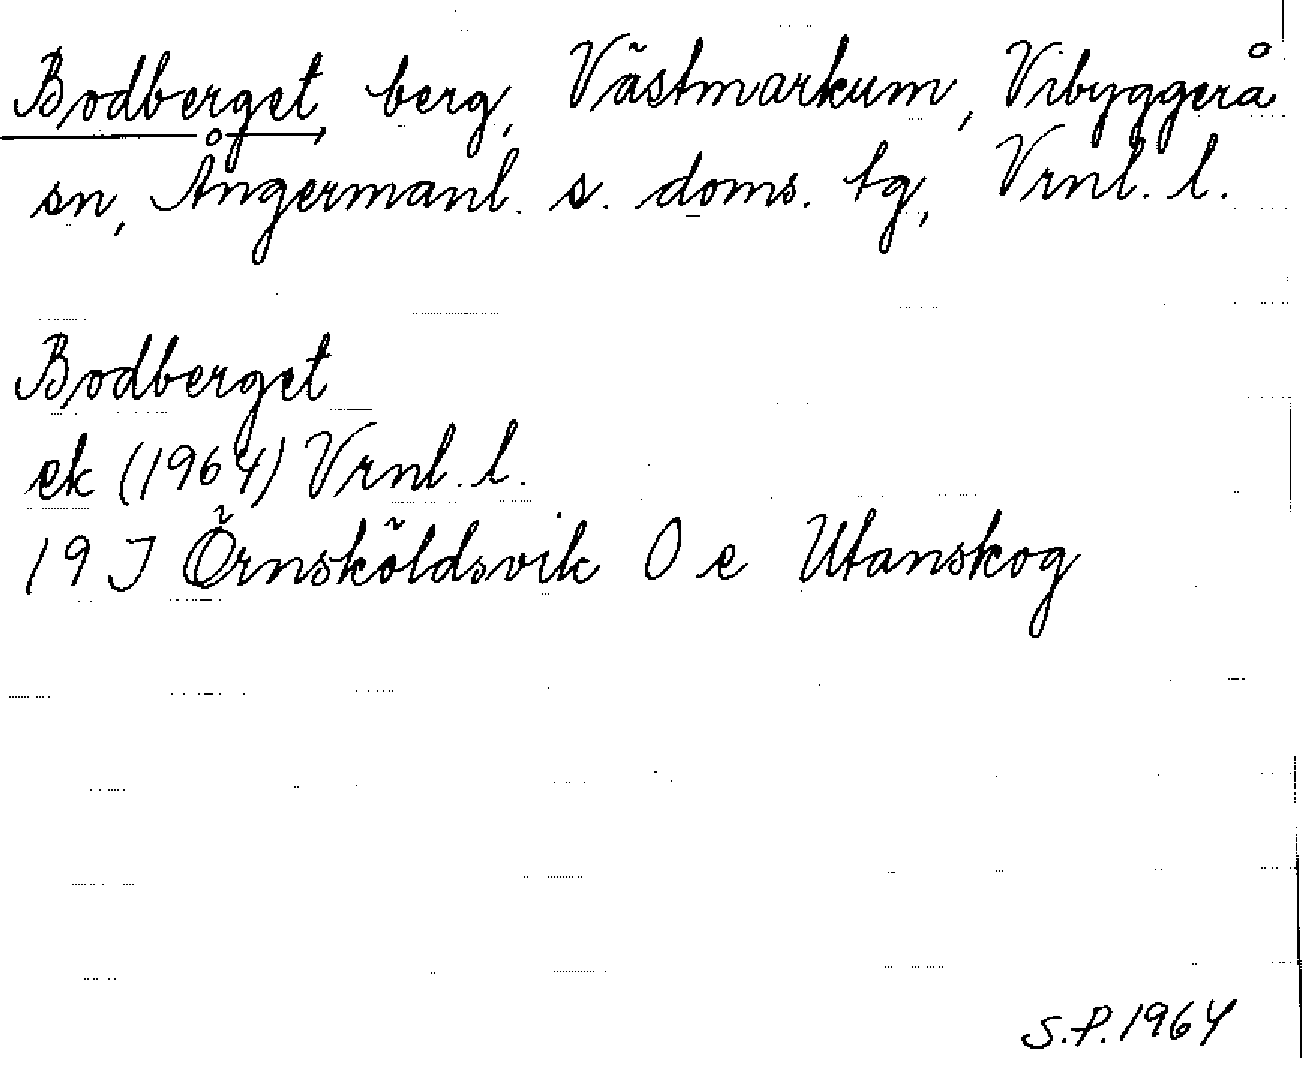 Bodberget, berg, Västmarkum, Vibyggerå
sn, Ångermanl. s. doms. tg, Vrnl. l.
Bodberget
ek (1964) Vrnl. l.
19 J Örnsköldsvik 0 e Utanskog
S.P. 1964